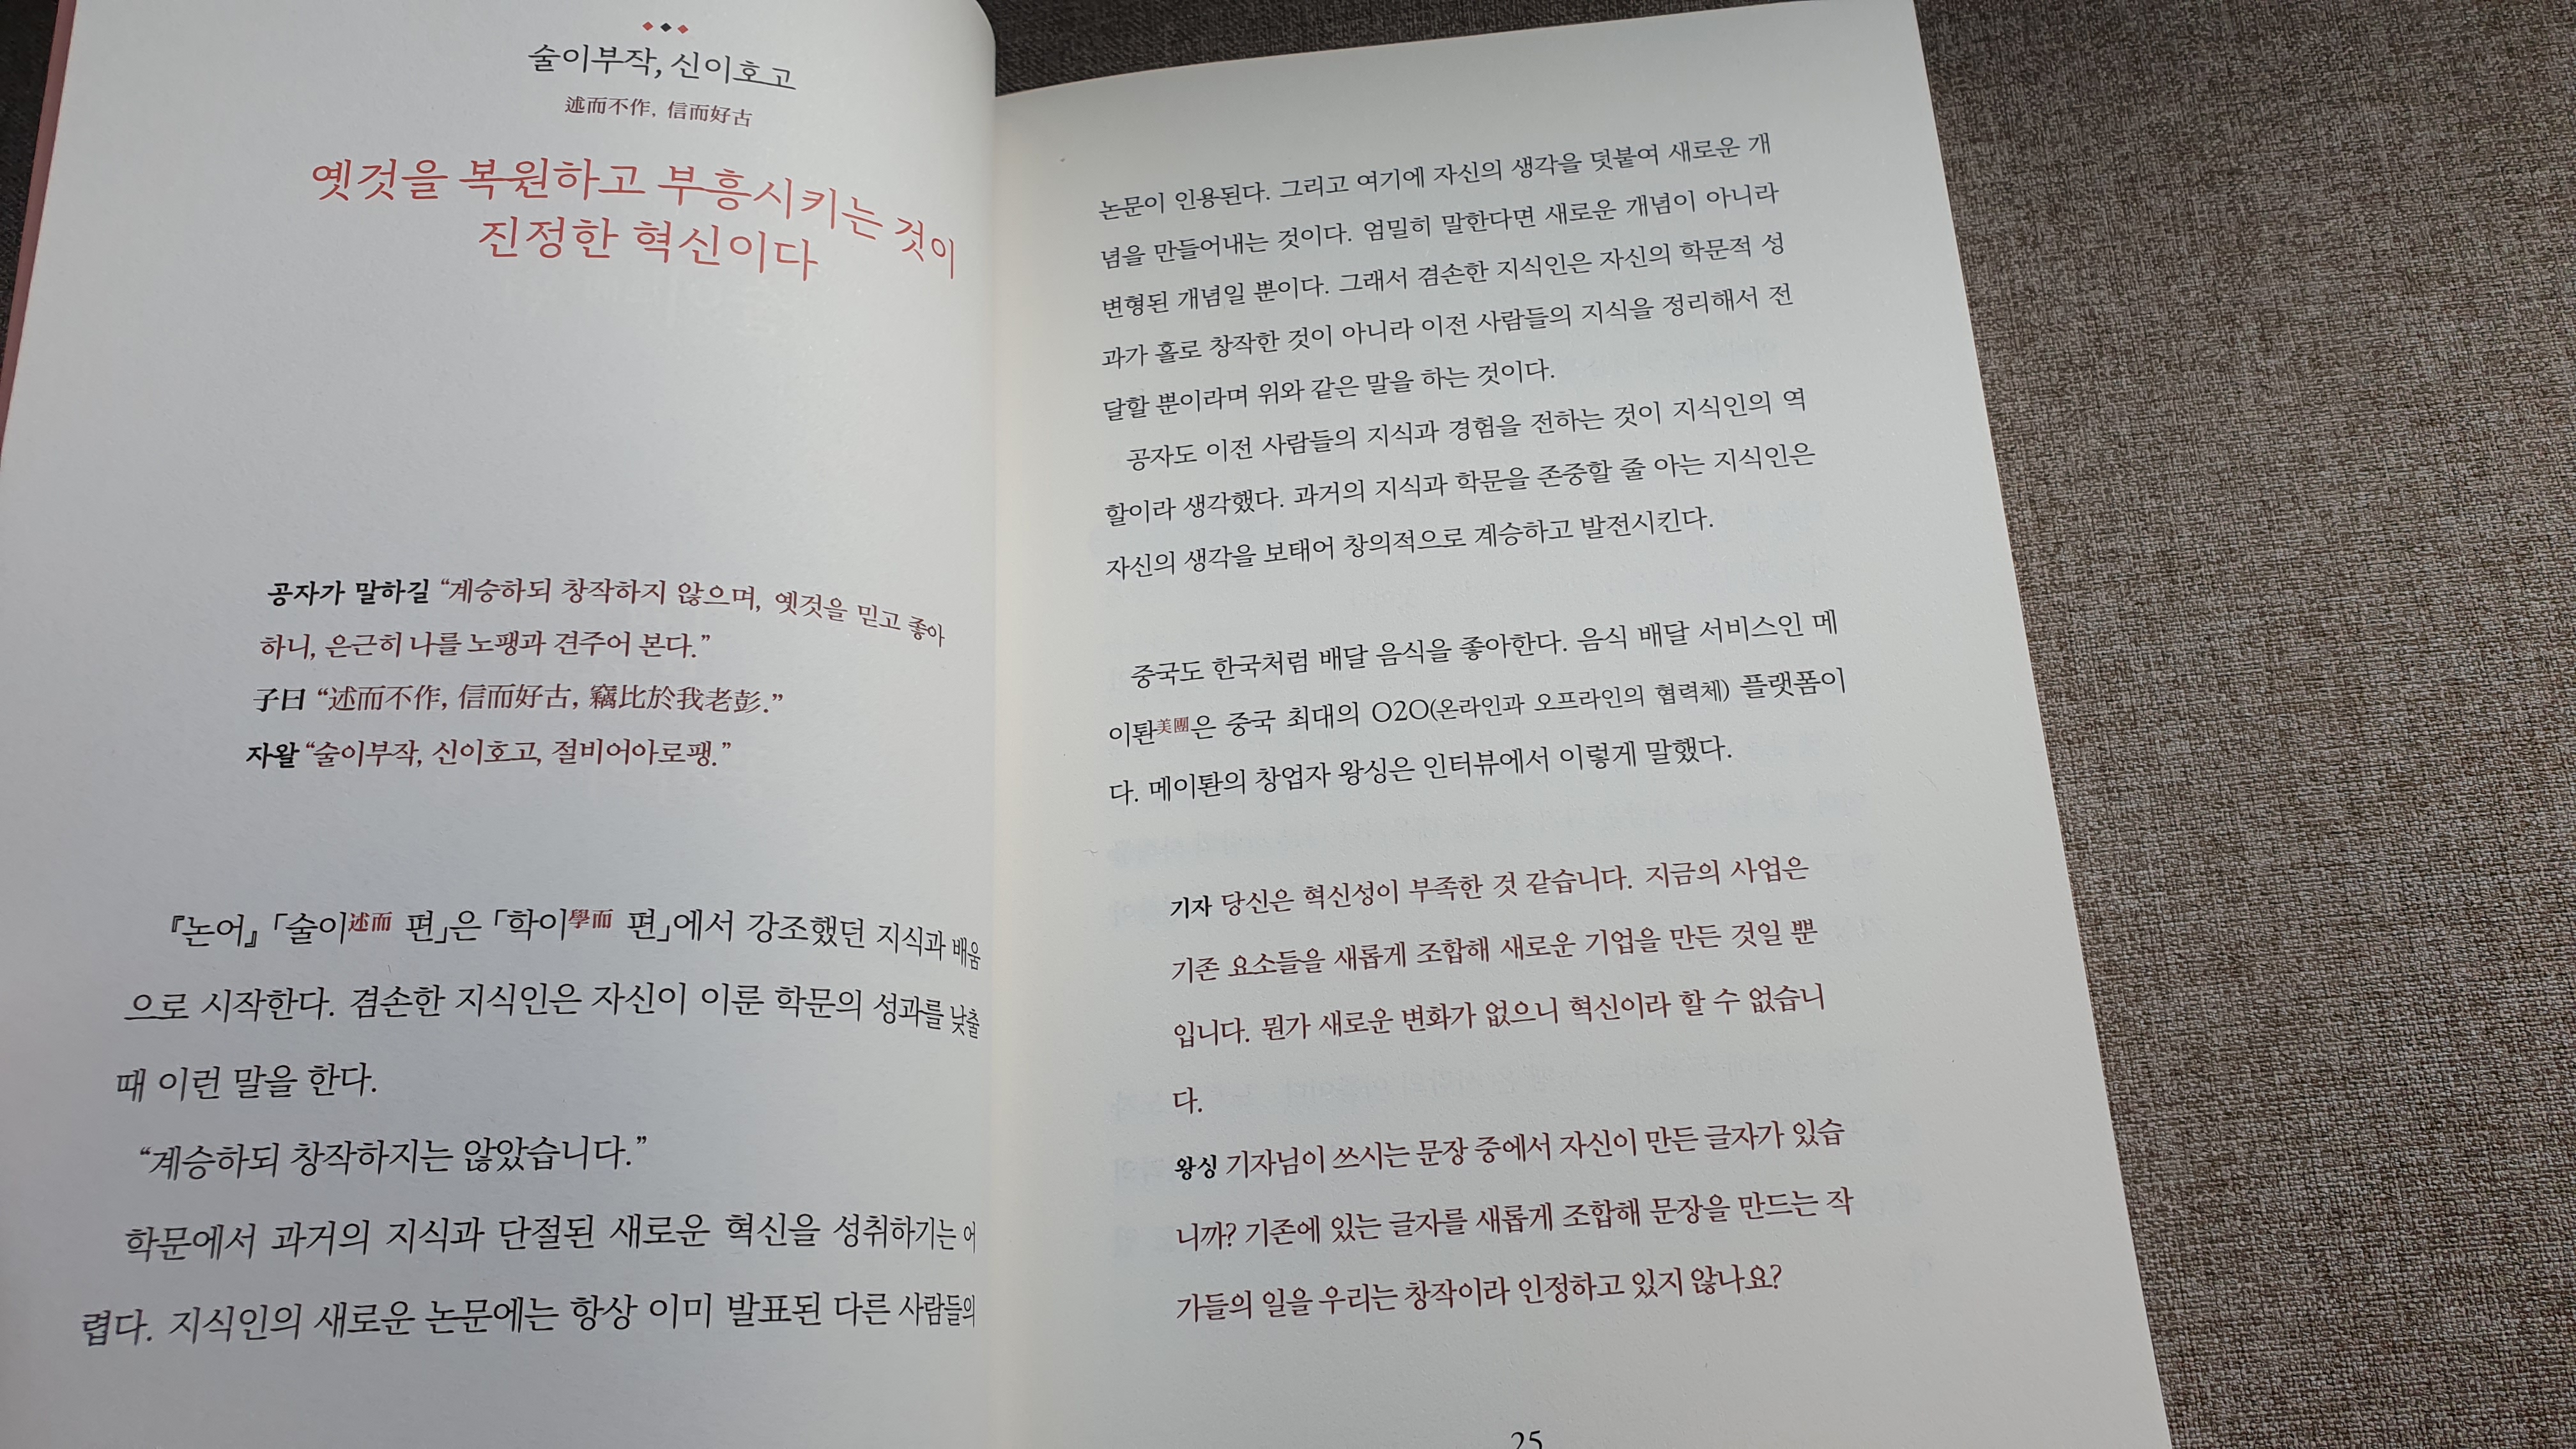 술이부작, 신이호고
述而不作, 信而好古
옛것을 복원하고 부흥시키는 것이
진정한 혁신이다
공자가 말하길 “계승하되 창작하지 않으며, 옛것을 믿고 좋아
하니, 은근히 나를 노팽과 견주어 본다.”
子曰 “述而不作, 信而好古, 竊比於我老彭.”
자왈 “술이부작, 신이호고, 절비어아로팽.”
『논어』 「술이述而 편」은 「학이學而 편」에서 강조했던 지식과 배움
으로 시작한다. 겸손한 지식인은 자신이 이룬 학문의 성과를 낮출
때 이런 말을 한다.
“계승하되 창작하지는 않았습니다.”
학문에서 과거의 지식과 단절된 새로운 혁신을 성취하기는 어
렵다. 지식인의 새로운 논문에는 항상 이미 발표된 다른 사람들의
논문이 인용된다. 그리고 여기에 자신의 생각을 덧붙여 새로운 개
념을 만들어내는 것이다. 엄밀히 말한다면 새로운 개념이 아니라
변형된 개념일 뿐이다. 그래서 겸손한 지식인은 자신의 학문적 성
과가 홀로 창작한 것이 아니라 이전 사람들의 지식을 정리해서 전
달할 뿐이라며 위와 같은 말을 하는 것이다.
공자도 이전 사람들의 지식과 경험을 전하는 것이 지식인의 역
할이라 생각했다. 과거의 지식과 학문을 존중할 줄 아는 지식인은
자신의 생각을 보태어 창의적으로 계승하고 발전시킨다.
중국도 한국처럼 배달 음식을 좋아한다. 음식 배달 서비스인 메
이퇀美團은 중국 최대의 O2O(온라인과 오프라인의 협력체) 플랫폼이
다. 메이퇀의 창업자 왕싱은 인터뷰에서 이렇게 말했다.
기자 당신은 혁신성이 부족한 것 같습니다. 지금의 사업은
기존 요소들을 새롭게 조합해 새로운 기업을 만든 것일 뿐
입니다. 뭔가 새로운 변화가 없으니 혁신이라 할 수 없습니
다.
왕싱 기자님이 쓰시는 문장 중에서 자신이 만든 글자가 있습
니까? 기존에 있는 글자를 새롭게 조합해 문장을 만드는 작
가들의 일을 우리는 창작이라 인정하고 있지 않나요?
25